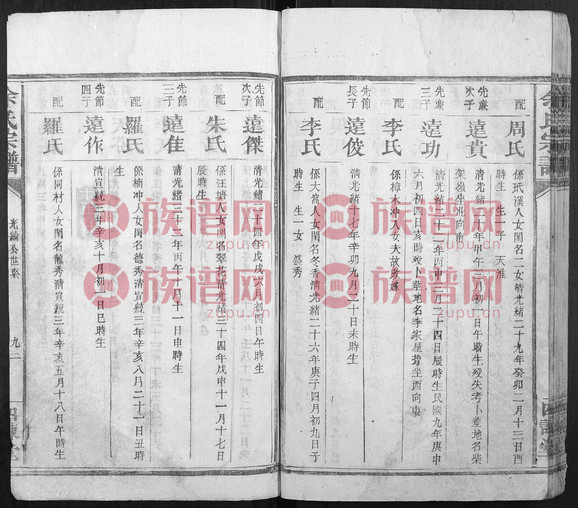 配
周氏
係玳漢人女閨名二女清光緒二十九年癸卯二月十三日酉
時生 生一子 天淮
先歲
次子
遠貴
清光緒二十年甲午三月初
先歲
三子
遠功
清光緒二十二年丙申三月二十四日辰時生民國九年庚申
六月初四日亥時歿卜葬地名李家屋背坐西向東
配
李氏
係樟木冲人女大故改嫁
先節
長子
遠俊
清光緒十七年辛卯九月二十日未時生
配
李氏
係大人女閨名冬香清光緒二十六年庚子四月初九日子
時生 生一女
先節
次子
遠傑
清光緒二十四年戊戌六月初四日午時生
配
朱氏
係汪塘人女閨名翠花清光緒三十四年戊申十一月十七日
辰時生
先節
三子
遠佳
清光緒三十二年丙午十月十一日申時生
配
羅氏
係楠冲人女閨名德秀清宣統三年辛亥八月二十一日丑時
生
先節
四子
遠作
清宣統三年辛亥十月初一日巳時生
配
羅氏
係同村人女閨名龍秀清宣統三年辛亥五月十八日午時生
余氏宗譜
九二
族谱网
zupu.cn